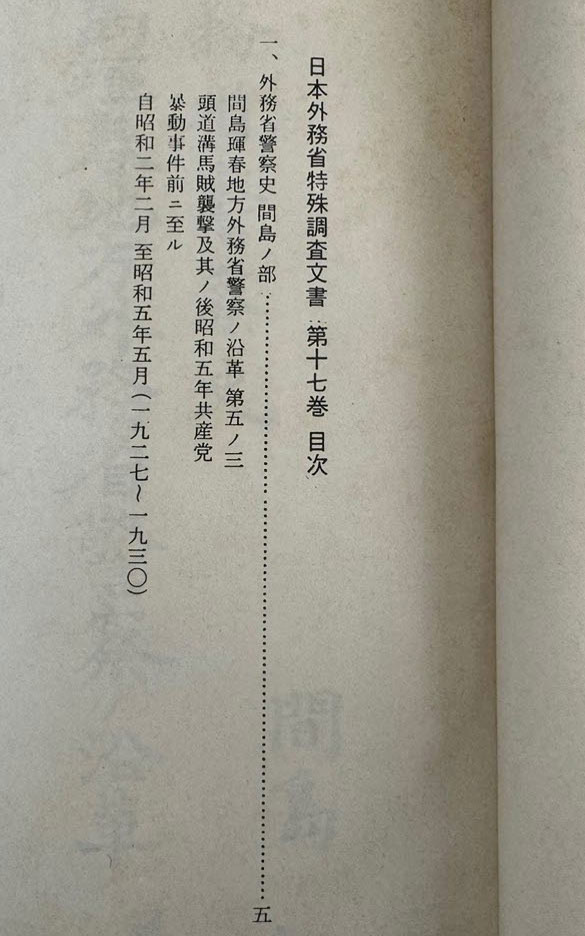 日本外務省特殊調査文書：第十七巻 目次
一、外務省警察史 間島ノ部……………………………………五
間島琿春地方外務省警察ノ沿革 第五ノ三
頭道溝馬賊襲撃及其ノ後昭和五年共産党
暴動事件前ニ至ル
自昭和二年二月 至昭和五年五月(一九二七~一九三〇)
間島
沿革